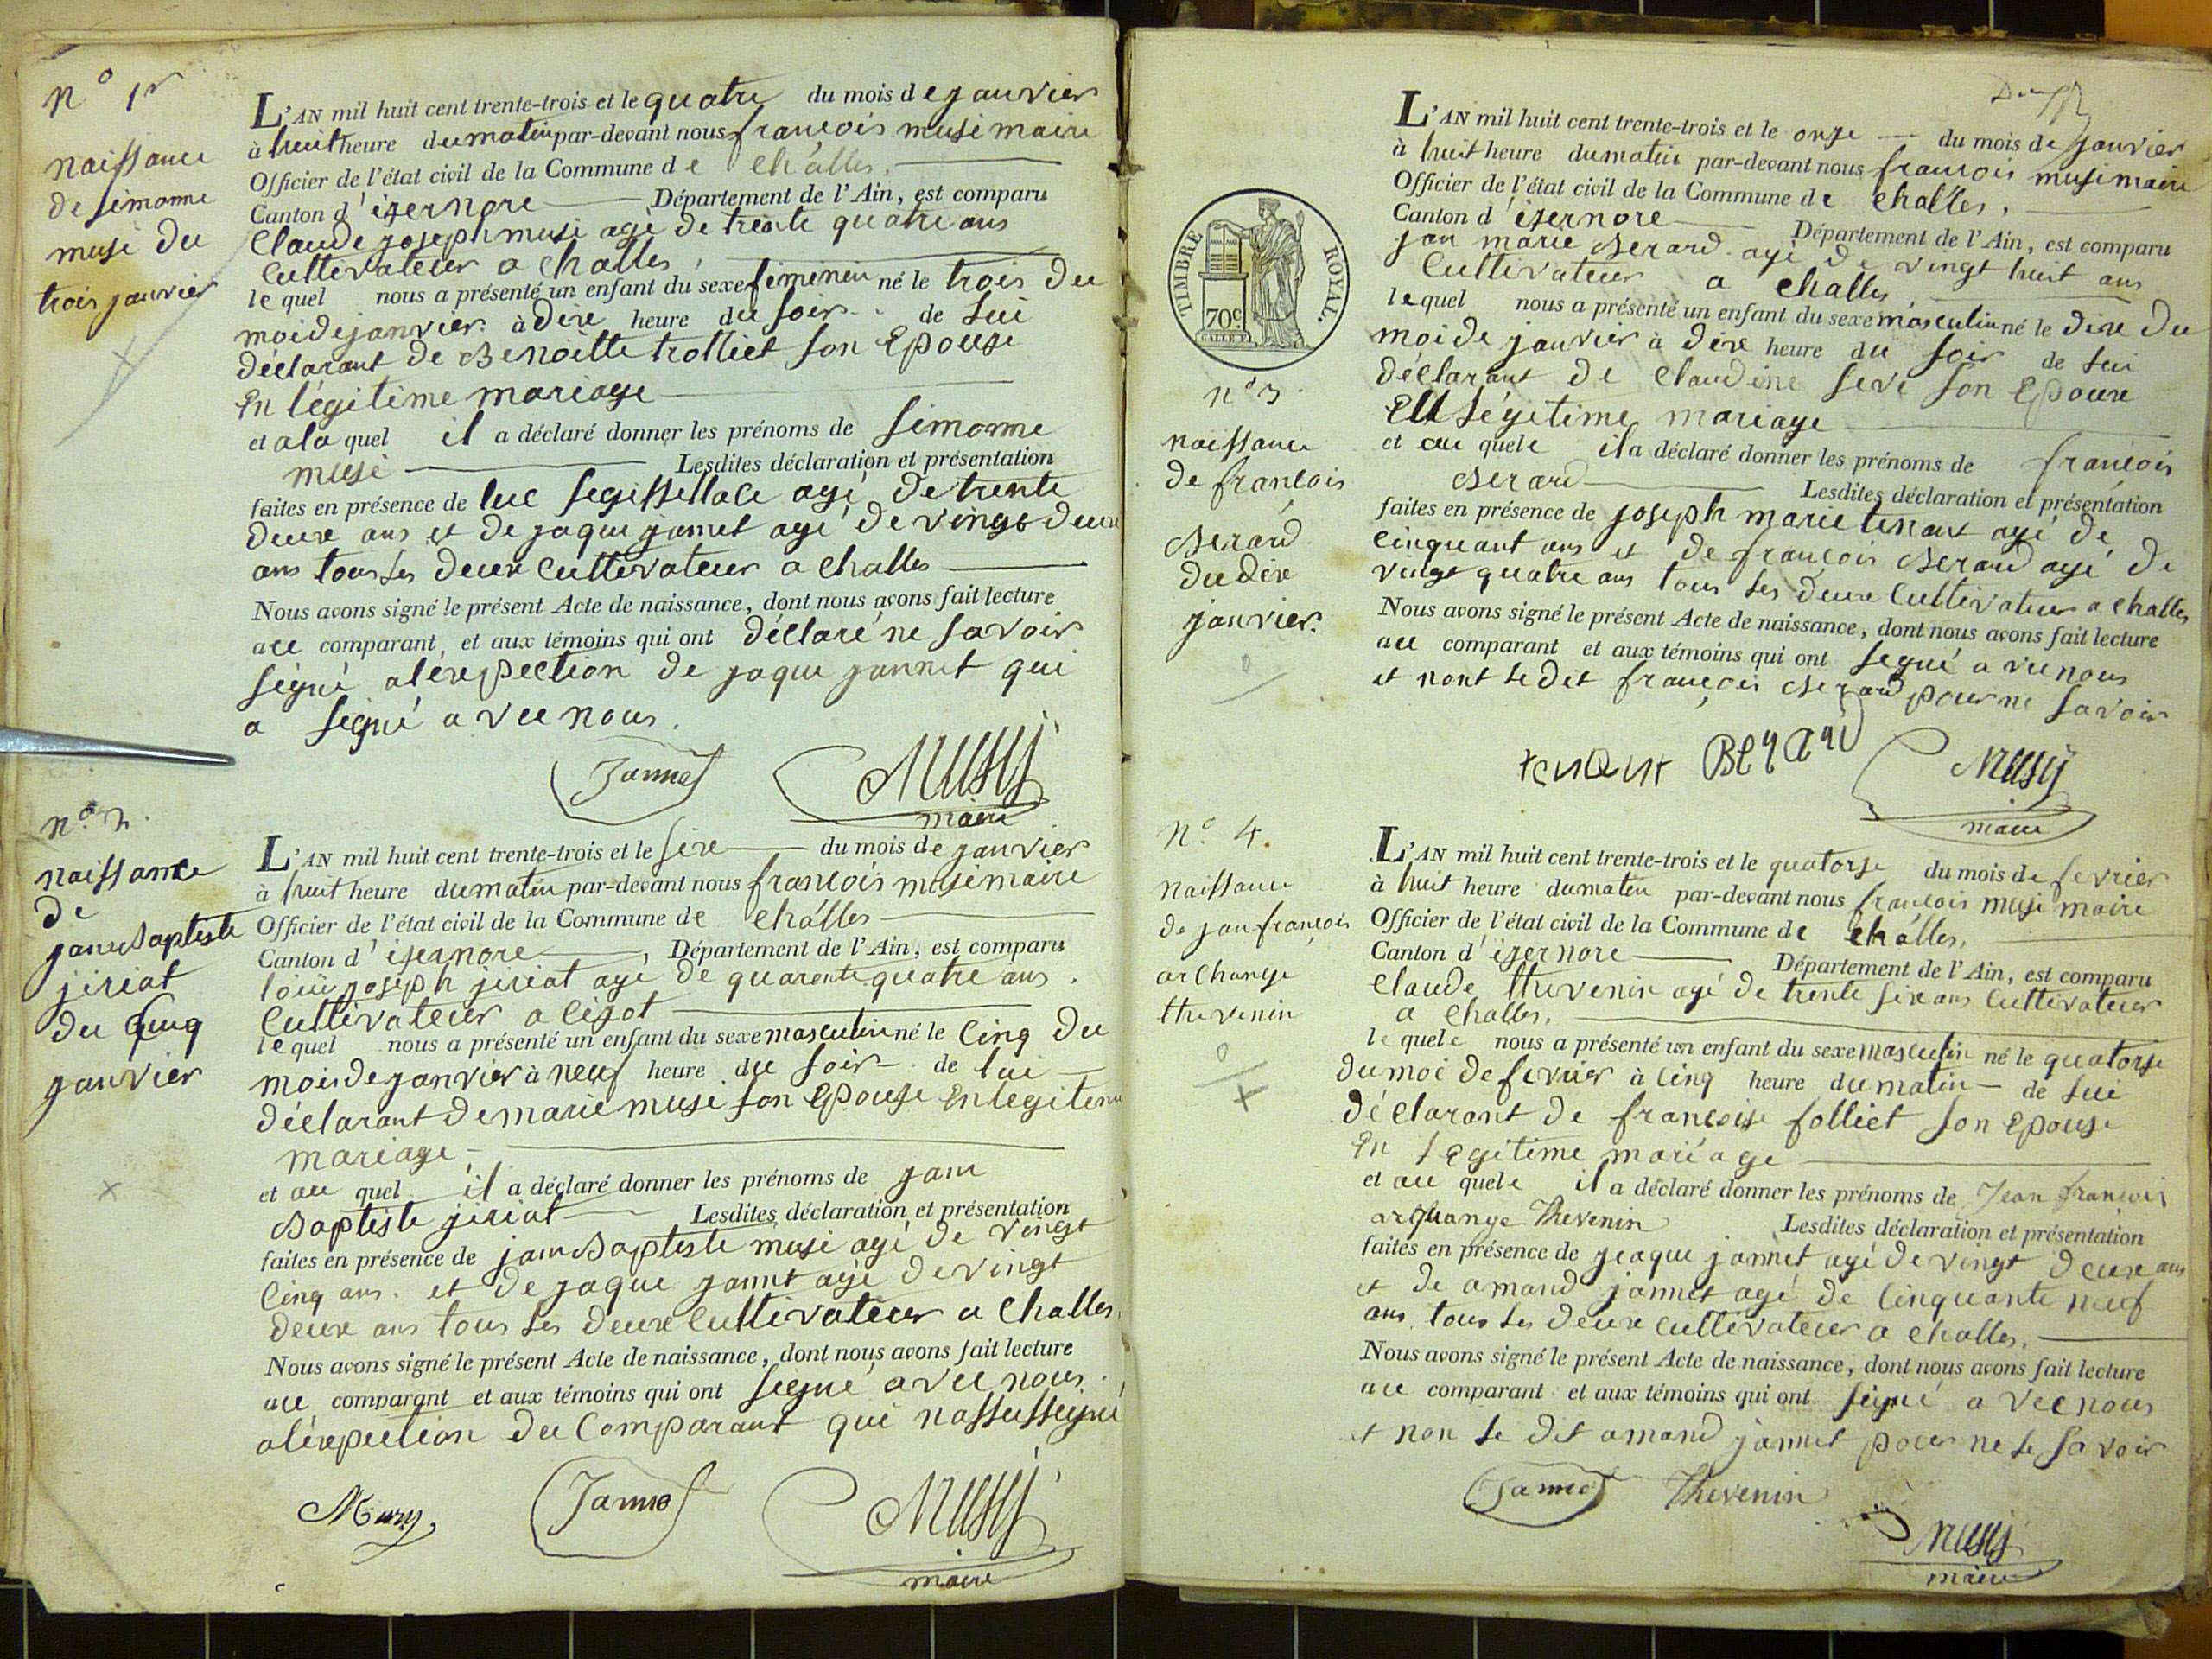 n° 1r
naissance
de simonne
musi du
trois janvier
L'AN mil huit cent trente-trois et le quatre du mois de janvier
à huit heure du matin par-devant nous françois musi maire
Officier de l'état civil de la Commune de challes.
Canton d'izernore Département de l'Ain, est comparu
Claude joseph musi agé de trente quatre ans
Cultivateur a challes,
lequel nous a présenté un enfant du sexe feminin né le trois du
moi de janvier à dix heure du soir de lui
déclarant de Benoitte trolliet son Epouse
En légitime mariage
et a la quel il a déclaré donner les prénoms de simonne
musi Lesdites déclaration et présentation
faites en présence de luc agé de trente
deux ans et de jaque jannet agé de vingt deux
ans tous les deux Cultivateur a challes
Nous avons signé le présent Acte de naissance, dont nous avons fait lecture
au comparant, et aux témoins qui ont déclaré ne savoir
signé a lexpection de jaque jannet qui
a signé avec nous.
Jannet Musy
maire
n° 2.
naissance
de
jan Baptiste
jiriat
du Cinq
janvier
L'AN mil huit cent trente-trois et le six du mois de janvier
à huit heure du matin par-devant nous françois musi maire
Officier de l'état civil de la Commune de challes
Canton d'izernore, Département de l'Ain, est comparu
loüi joseph jiriat agé de quarente quatre ans.
Cultivateur a Cizot
lequel nous a présenté un enfant du sexe masculin né le Cinq du
mois de janvier à neuf heure du soir de lui
déclarant de marie musi son Epouse En legitime
mariage
et au quel il a déclaré donner les prénoms de jan
Baptiste jiriat Lesdites déclaration et présentation
faites en présence de jan Baptiste musi agé de vingt
Cinq ans. et de jaque jannet agé de vingt
deux ans tous les deux Cultivateur a Challes.
Nous avons signé le présent Acte de naissance, dont nous avons fait lecture
au comparant et aux témoins qui ont signé avec nous.
a lexpection du Comparant qui
Musy Jannet Musy
maire
TIMBRE ROYAL.
70c
n° 3.
naissance
de françois
Berard
du dix
janvier.
L'AN mil huit cent trente-trois et le onze du mois de janvier
à huit heure du matin par-devant nous françois musi maire
Officier de l'état civil de la Commune de challes,
Canton d'izernore Département de l'Ain, est comparu
jan marie Berard agé de vingt huit ans
Cultivateur a challes,
lequel nous a présenté un enfant du sexe masculin né le dix du
moi de janvier à dix heure du soir de lui
déclarant de Claudine seve son Epouse
En légitime mariage
et au quele il a déclaré donner les prénoms de françois
Berard Lesdites déclaration et présentation
faites en présence de joseph marie tenant agé de
Cinquant ans et de françois Berard agé de
vingt quatre ans tous les deux Cultivateur a challes
Nous avons signé le présent Acte de naissance, dont nous avons fait lecture
au comparant et aux témoins qui ont signé avec nous
et nont le dit françois Berard pour ne savoir
tenant Berard Musy
maire
n° 4.
naissance
de jan françois
archange
thevenin
L'AN mil huit cent trente-trois et le quatorse du mois de fevrier
à huit heure du matin par-devant nous françois musi maire
Officier de l'état civil de la Commune de challes,
Canton d'izernore Département de l'Ain, est comparu
Claude thevenin agé de trente six ans Cultivateur
a challes.
lequele nous a présenté un enfant du sexe masculin né le quatorse
du moi de fevrier à Cinq heure du matin de lui
déclarant de françoise folliet son Epouse
En legitime mariage
et au quele il a déclaré donner les prénoms de Jean francois
arquange Thevenin Lesdites déclaration et présentation
faites en présence de jeaque jannet agé de vingt deux ans
et de amand jannet agé de Cinquante neuf
ans. tous les deux Cultivateur a challes.
Nous avons signé le présent Acte de naissance, dont nous avons fait lecture
au comparant et aux témoins qui ont signé avec nous
et non le dit amand jannet pour ne le savoir
Jannet Thevenin
Musy
maire